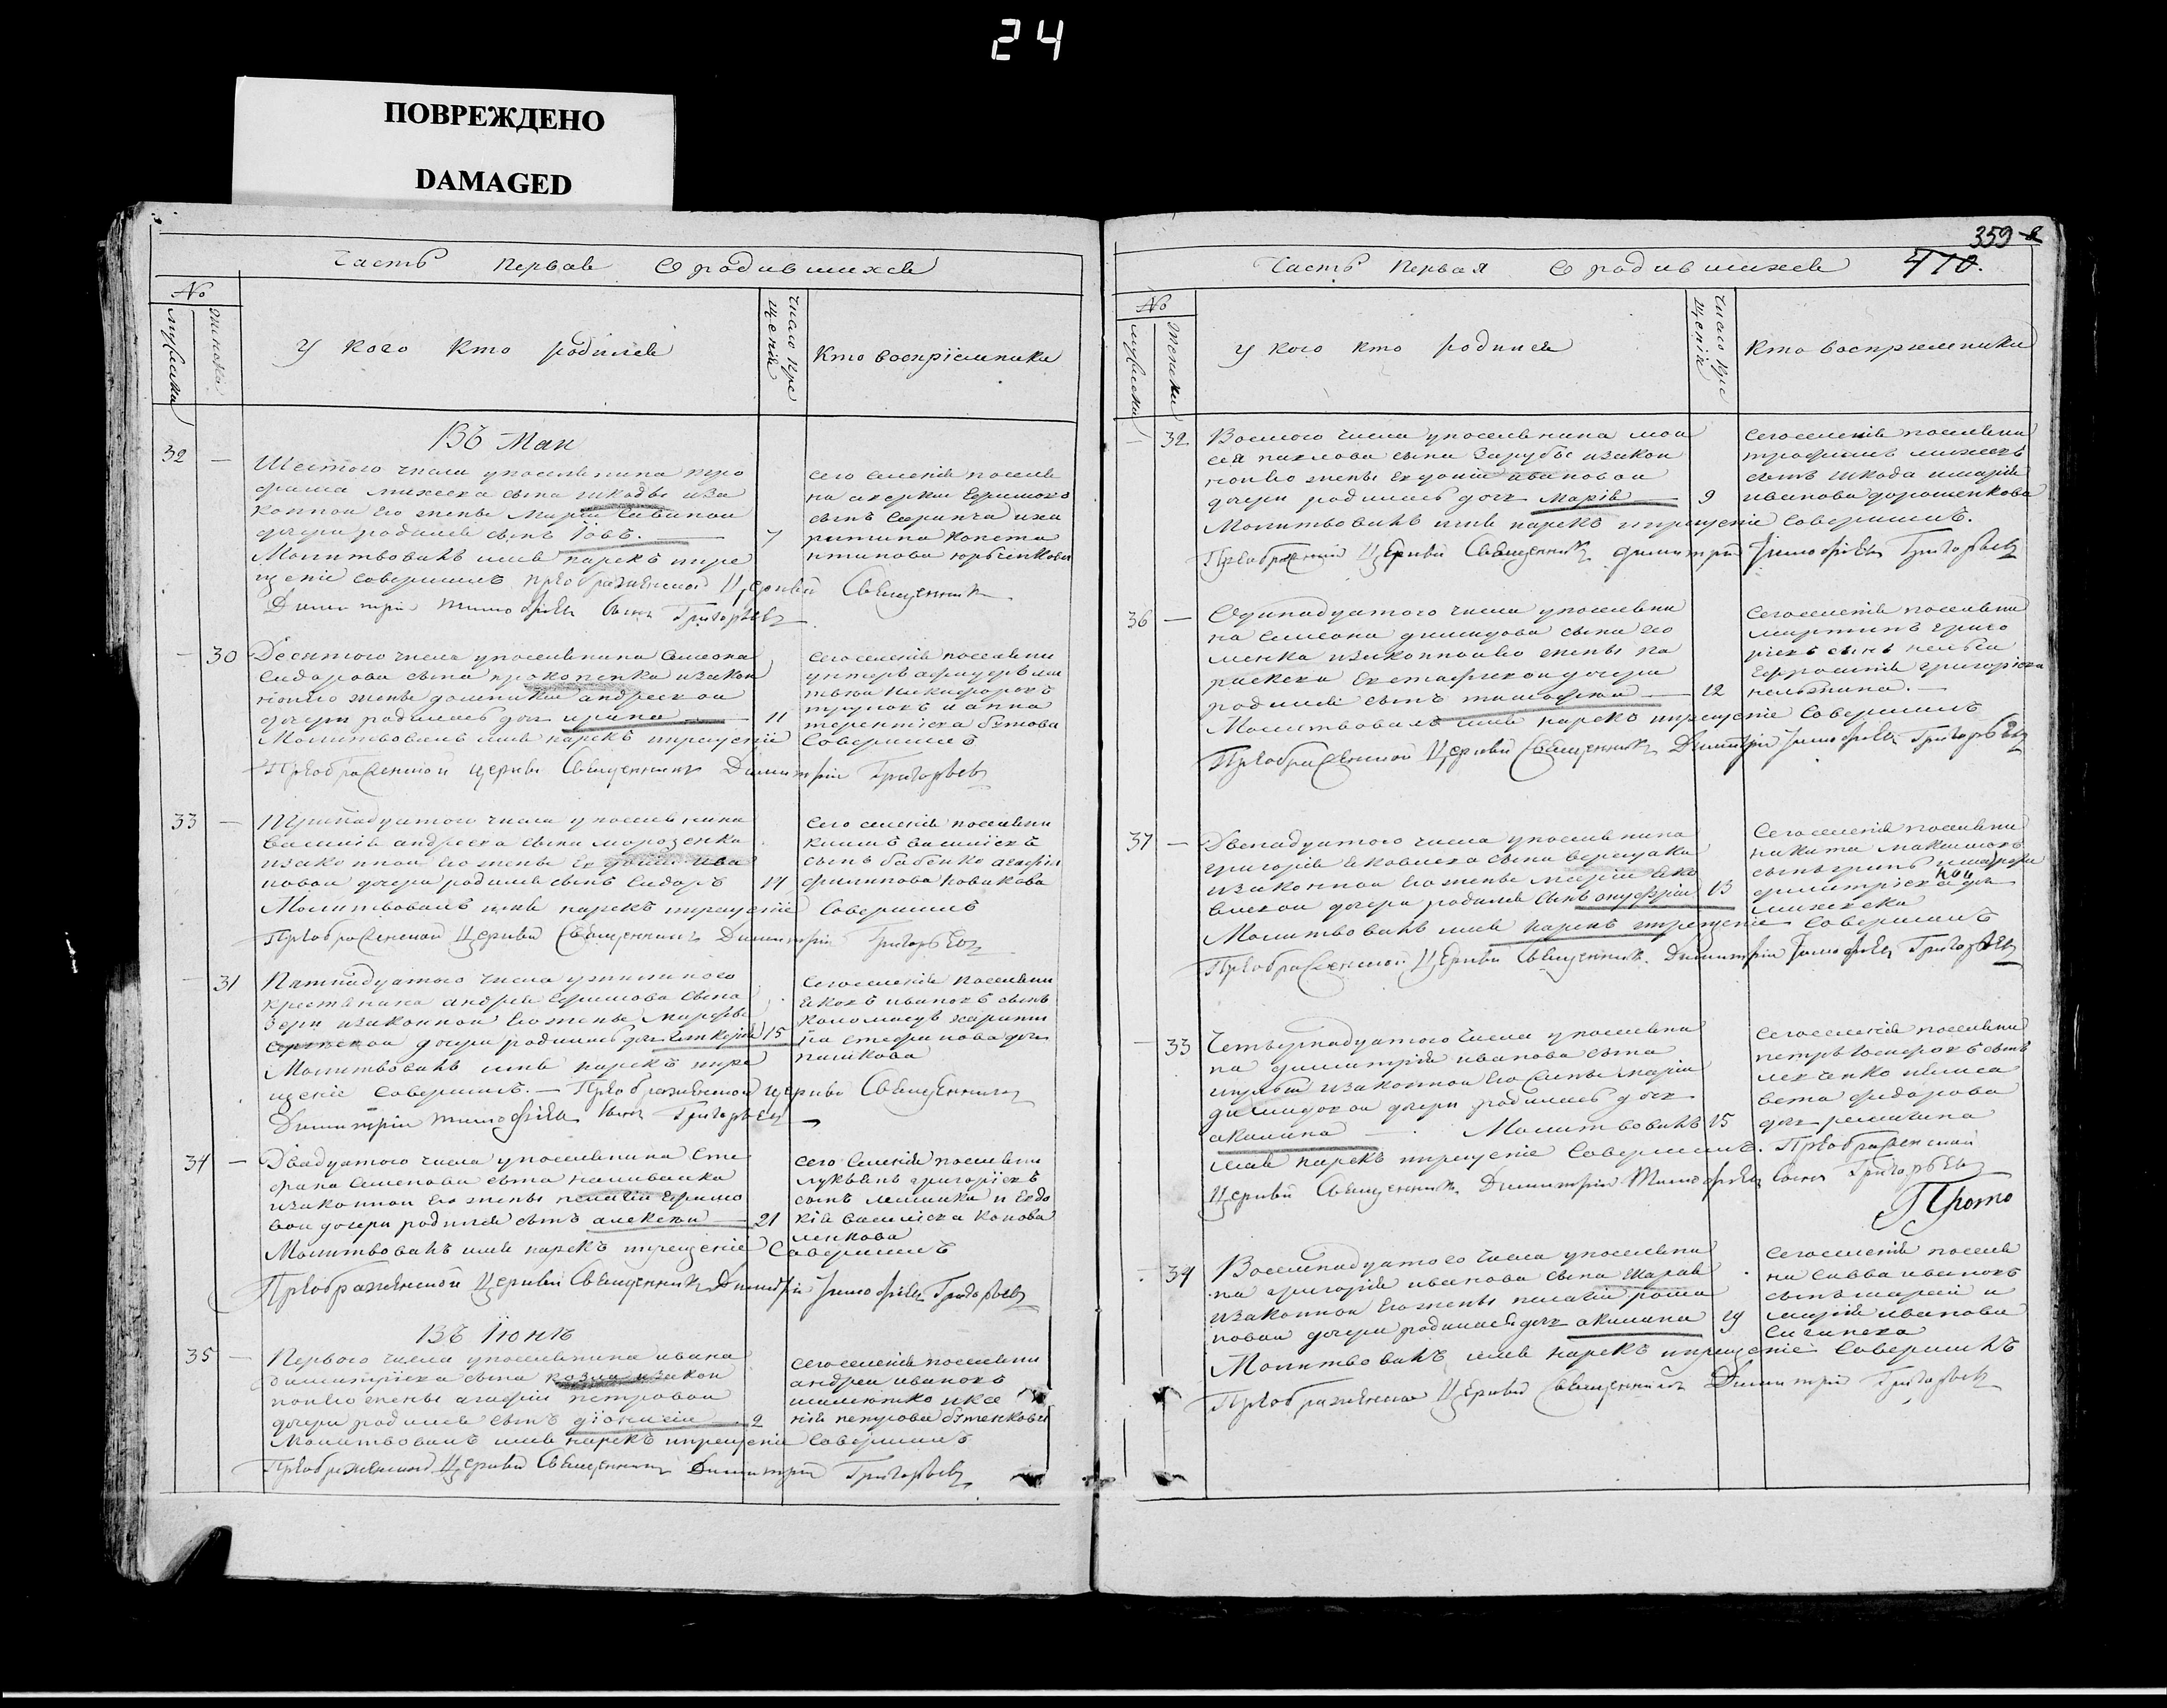 24
ПОВРЕЖДЕНО
DAMAGED
Часть Первая О родившихся
№
мужеска
женска
У кого кто родился
Число кре
щенія
Кто воспріемники
Въ Маи
32 —
Шестого числа у поселянина тро
фима михеева сына шкоды иза
конной его жены Маріи Савиной
дочери родился сынъ Іовъ. — 7
Молитвовалъ имя нарекъ икре
щеніе совершилъ преображенской Церкви Священникъ
Димитрій тимофѣевъ сынъ Григорьевъ
сего селенія поселя
сынъ
— 30
Десятого числа у поселянина Симеона
Сидорова сына прокопенка изакон
ной его жены домникіи андреевой
дочери родилась дочь ирина — 11
Молитвовалъ имя нарекъ икрещеніе Совершилъ
Преображенской церкви Священникъ Димитрій Григорьевъ
сего селенія поселяни
терентіева бутова
33 —
Тринадцатого числа у поселянина
Василія андреева сына морозенка
изаконной его жены Евдокіи ива
новой дочери родился сынъ Сидоръ 14
Молитвовалъ имя нарекъ икрещеніе Совершилъ
Преображенской Церкви Священникъ Димитрій Григорьевъ
сего селенія поселяни
климъ василіевъ
сынъ бабенко агафія
филипова новикова
— 31
Пятнадцатого числа
крестьянина андрея Ефимова сына
изаконной его жены Марфы
дочери родилась дочь гликерія 15
Молитвовалъ имя нарекъ икре
щеніе Совершилъ. — Преображенской церкви Священникъ
Димитрій тимофѣевъ сынъ Григорьевъ
сего селенія поселяни
яковъ ивановъ сынъ
стефанова дочь
пашкова
34 —
Двадцатого числа у поселянина Сте
фана Семенова сына наливайка
изаконной его жены пелагіи Ефимо
вой дочери родился сынъ алексѣй — 21
Молитвовалъ имя нарекъ икрещеніе Совершилъ
Преображенской Церкви Священникъ Димитрій Тимофѣевъ Григорьевъ
сего селенія поселяни
лукьянъ григоріевъ
сынъ и Евдо
кія василіева конова
ленкова
Въ Іюнѣ
35 —
Первого числа у поселянина ивана
димитріева сына козла изакон
ной его жены агафіи петровой
дочери родился сынъ діонисій — 2
Молитвовалъ имя нарекъ икрещеніе Совершилъ
Преображенской Церкви Священникъ Димитрій Григорьевъ
сего селенія поселяни
андрей ивановъ
и ксе
нія петрова бутенкова
359
410.
Часть Первая О родившихся
№
мужеска
женска
У кого кто родился
Число кре
щенія
Кто воспріемники
— 32
Восмого числа у поселянина мои
сея павлова сына Зарубы изакон
ной его жены Евдокіи ивановой
дочери родилась дочь Марія — 9
Молитвовалъ имя нарекъ икрещеніе Совершилъ.
Преображенской Церкви Священникъ Димитрій Тимофѣевъ Григорьевъ
сего селенія поселяни
трофимъ михеевъ
сынъ шкода и марія
иванова дорошенкова
36 —
Одинадцатого числа у поселяни
на Симеона димидова сына
изаконной его жены па
раскевы Евстафіевой дочери
родился сынъ тимофей — 12
Молитвовалъ имя нарекъ икрещеніе Совершилъ
Преображенской Церкви Священникъ Димитрій Тимофѣевъ Григорьевъ
сего селенія поселяни
мартинъ григо
ріевъ сынъ
Ефросинія григоріева
37 —
Двенадцатого числа у поселянина
григорія яковлева сына верещаки
изаконной его жены Маріи яко
влевой дочери родился сынъ онуфрій 13
Молитвовалъ имя нарекъ икрещеніе Совершилъ
Преображенской Церкви Священникъ Димитрій Тимофѣевъ Григорьевъ
сего селенія поселяни
никита максимовъ
димитріева
— 33
Четырнадцатого числа у поселяни
на димитрія иванова сына
изаконной его жены маріи
димидовой дочери родилась дочь
акилина — Молитвовалъ 15
имя нарекъ икрещеніе Совершилъ. Преображенской
Церкви Священникъ Димитрій Тимофѣевъ сынъ Григорьевъ
Прото
сего селенія поселяни
петръ Іосифовъ сынъ
левченко и елиса
вета федорова
дочь
— 34
Восемнадцатого числа у поселяни
на григорія иванова сына шарая
изаконной его жены пелагіи рома
новой дочери родилась дочь акилина 19
Молитвовалъ имя нарекъ икрещеніе Совершилъ
Преображенской Церкви Священникъ Димитрій Григорьевъ
сего селенія поселя
нин савва ивановъ
сынъ шарай и
марія иванова